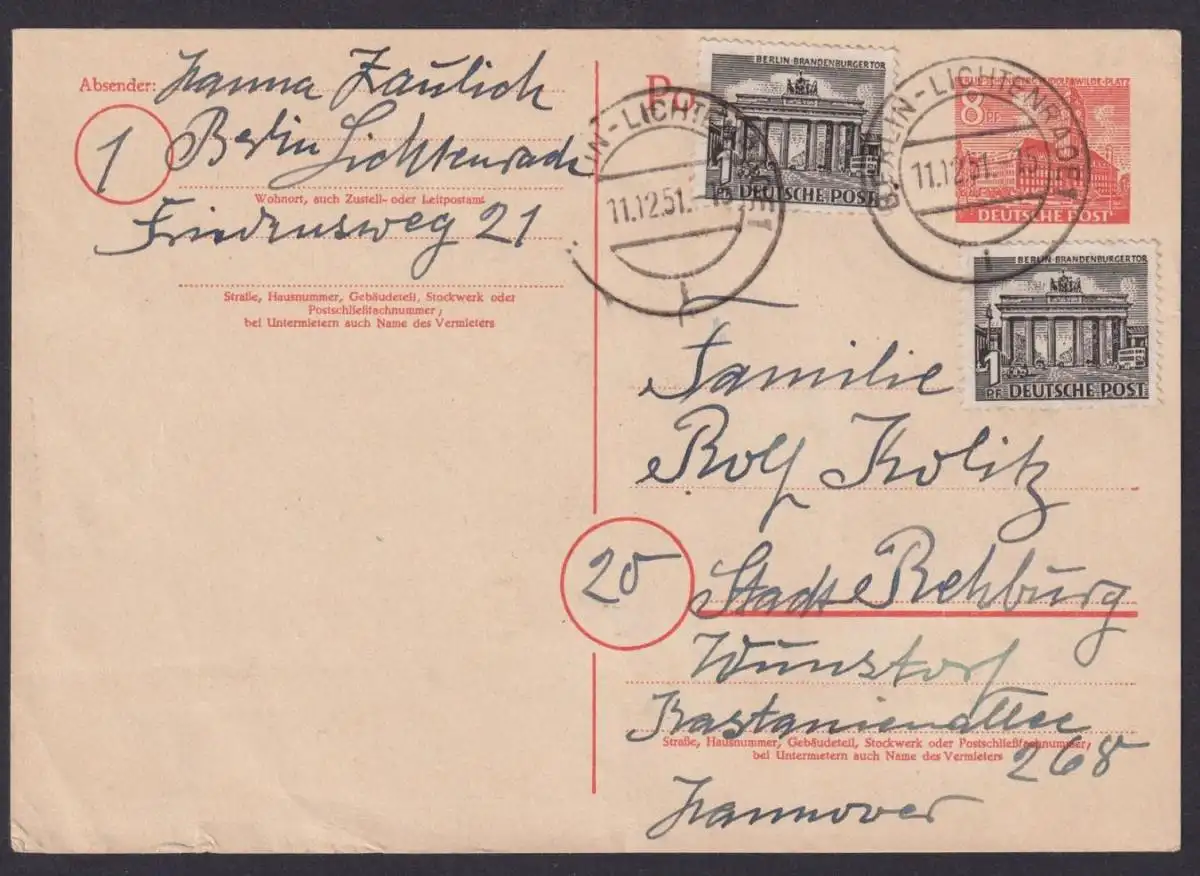 Absender: Hanna Zaulich
1 Berlin Lichtenrade
Wohnort, auch Zustell- oder Leitpostamt
Friedensweg 21
Straße, Hausnummer, Gebäudeteil, Stockwerk oder
Postschließfachnummer;
bei Untermietern auch Name des Vermieters
Po
BERLIN-BRANDENBURGER TOR
1
DEUTSCHE POST
BERLIN-SCHÖNEBERG RUDOLF-WILDE-PLATZ
8 PF
DEUTSCHE POST
IN-LICHTE
11.12.51.
BERLIN-LICHTENRADE 1
11.12.51.
BERLIN-BRANDENBURGER TOR
1 PF
DEUTSCHE POST
Familie
Rolf Kolitz
20 Stadt Rehburg
Wunstorf
Kastanienallee
Straße, Hausnummer, Gebäudeteil, Stockwerk oder Postschließfachnummer;
bei Untermietern auch Name des Vermieters
268
Hannover